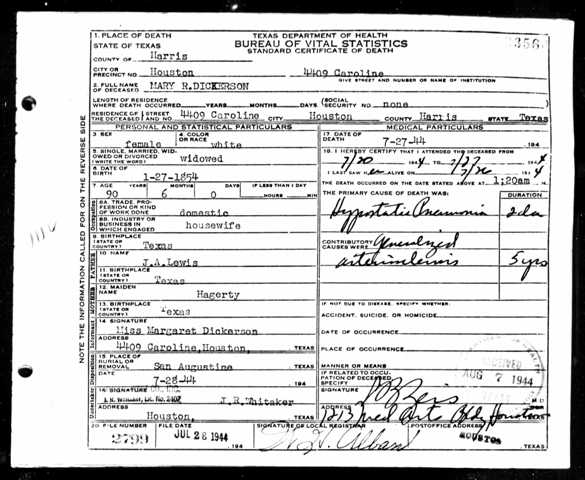 1. PLACE OF DEATH
STATE OF TEXAS
TEXAS DEPARTMENT OF HEALTH
BUREAU OF VITAL STATISTICS
STANDARD CERTIFICATE OF DEATH
356
COUNTY OF Harris
CITY OR PRECINCT NO. Houston 4409 Caroline
GIVE STREET AND NUMBER OR NAME OF INSTITUTION
2. FULL NAME OF DECEASED MARY R.DICKERSON
LENGTH OF RESIDENCE WHERE DEATH OCCURRED YEARS MONTHS DAYS (SOCIAL SECURITY NO. none
RESIDENCE OF THE DECEASED STREET AND NO. 4409 Caroline CITY Houston COUNTY Harris STATE Texas
PERSONAL AND STATISTICAL PARTICULARS
3. SEX female
4. COLOR OR RACE white
5. SINGLE, MARRIED, WIDOWED OR DIVORCED (WRITE THE WORD) widowed
6. DATE OF BIRTH 1-27-1854
7. AGE YEARS MONTHS DAYS IF LESS THAN 1 DAY
90 6 0 HOURS MIN
8A. TRADE, PROFESSION OR KIND OF WORK DONE domestic
8B. INDUSTRY OR BUSINESS IN WHICH ENGAGED housewife
9. BIRTHPLACE (STATE OR COUNTRY) Texas
10. NAME J.A.Lewis
11. BIRTHPLACE (STATE OR COUNTRY) Texas
12. MAIDEN NAME Hagerty
13. BIRTHPLACE (STATE OR COUNTRY) Texas
14. SIGNATURE Miss Margaret Dickerson
ADDRESS 4409 Caroline,Houston, TEXAS
15. PLACE OF BURIAL OR REMOVAL San Augustine TEXAS
DATE 7-28-44
16. SIGNATURE J.R.Whitaker
ADDRESS Houston, TEXAS
MEDICAL PARTICULARS
17. DATE OF DEATH 7-27-44 194
18. I HEREBY CERTIFY THAT I ATTENDED THE DECEASED FROM
7/20 1944 TO 7/27 1944
I LAST SAW ALIVE ON 7/26 1944
THE DEATH OCCURRED ON THE DATE STATED ABOVE AT 1:20am M.
THE PRIMARY CAUSE OF DEATH WAS: DURATION
Hypostatic Pneumonia 2 da
CONTRIBUTORY CAUSES WERE: Generalized
arteriosclerosis 5 yrs
IF NOT DUE TO DISEASE, SPECIFY WHETHER:
ACCIDENT, SUICIDE, OR HOMICIDE
DATE OF OCCURRENCE
PLACE OF OCCURRENCE
MANNER OR MEANS
IF RELATED TO OCCUPATION OF DECEASED, SPECIFY
RECEIVED
AUG 7 1944
SIGNATURE M.D.
ADDRESS 1213 Med Arts Bldg Houston
20. FILE NUMBER 2799
FILE DATE JUL 28 1944 194
SIGNATURE OF LOCAL REGISTRAR
POSTOFFICE ADDRESS HOUSTON TEXAS
NOTE THE INFORMATION CALLED FOR ON THE REVERSE SIDE
Occupation
FATHER
MOTHER
Informant
Undertaker Disposition